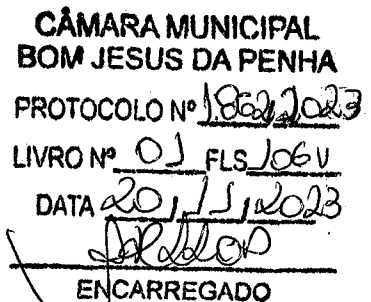 CÂMARA MUNICIPAL
BOM JESUS DA PENHA
PROTOCOLO Nº 1.862/2023
LIVRO Nº 01 FLS 106V
DATA 20/11/2023
ENCARREGADO